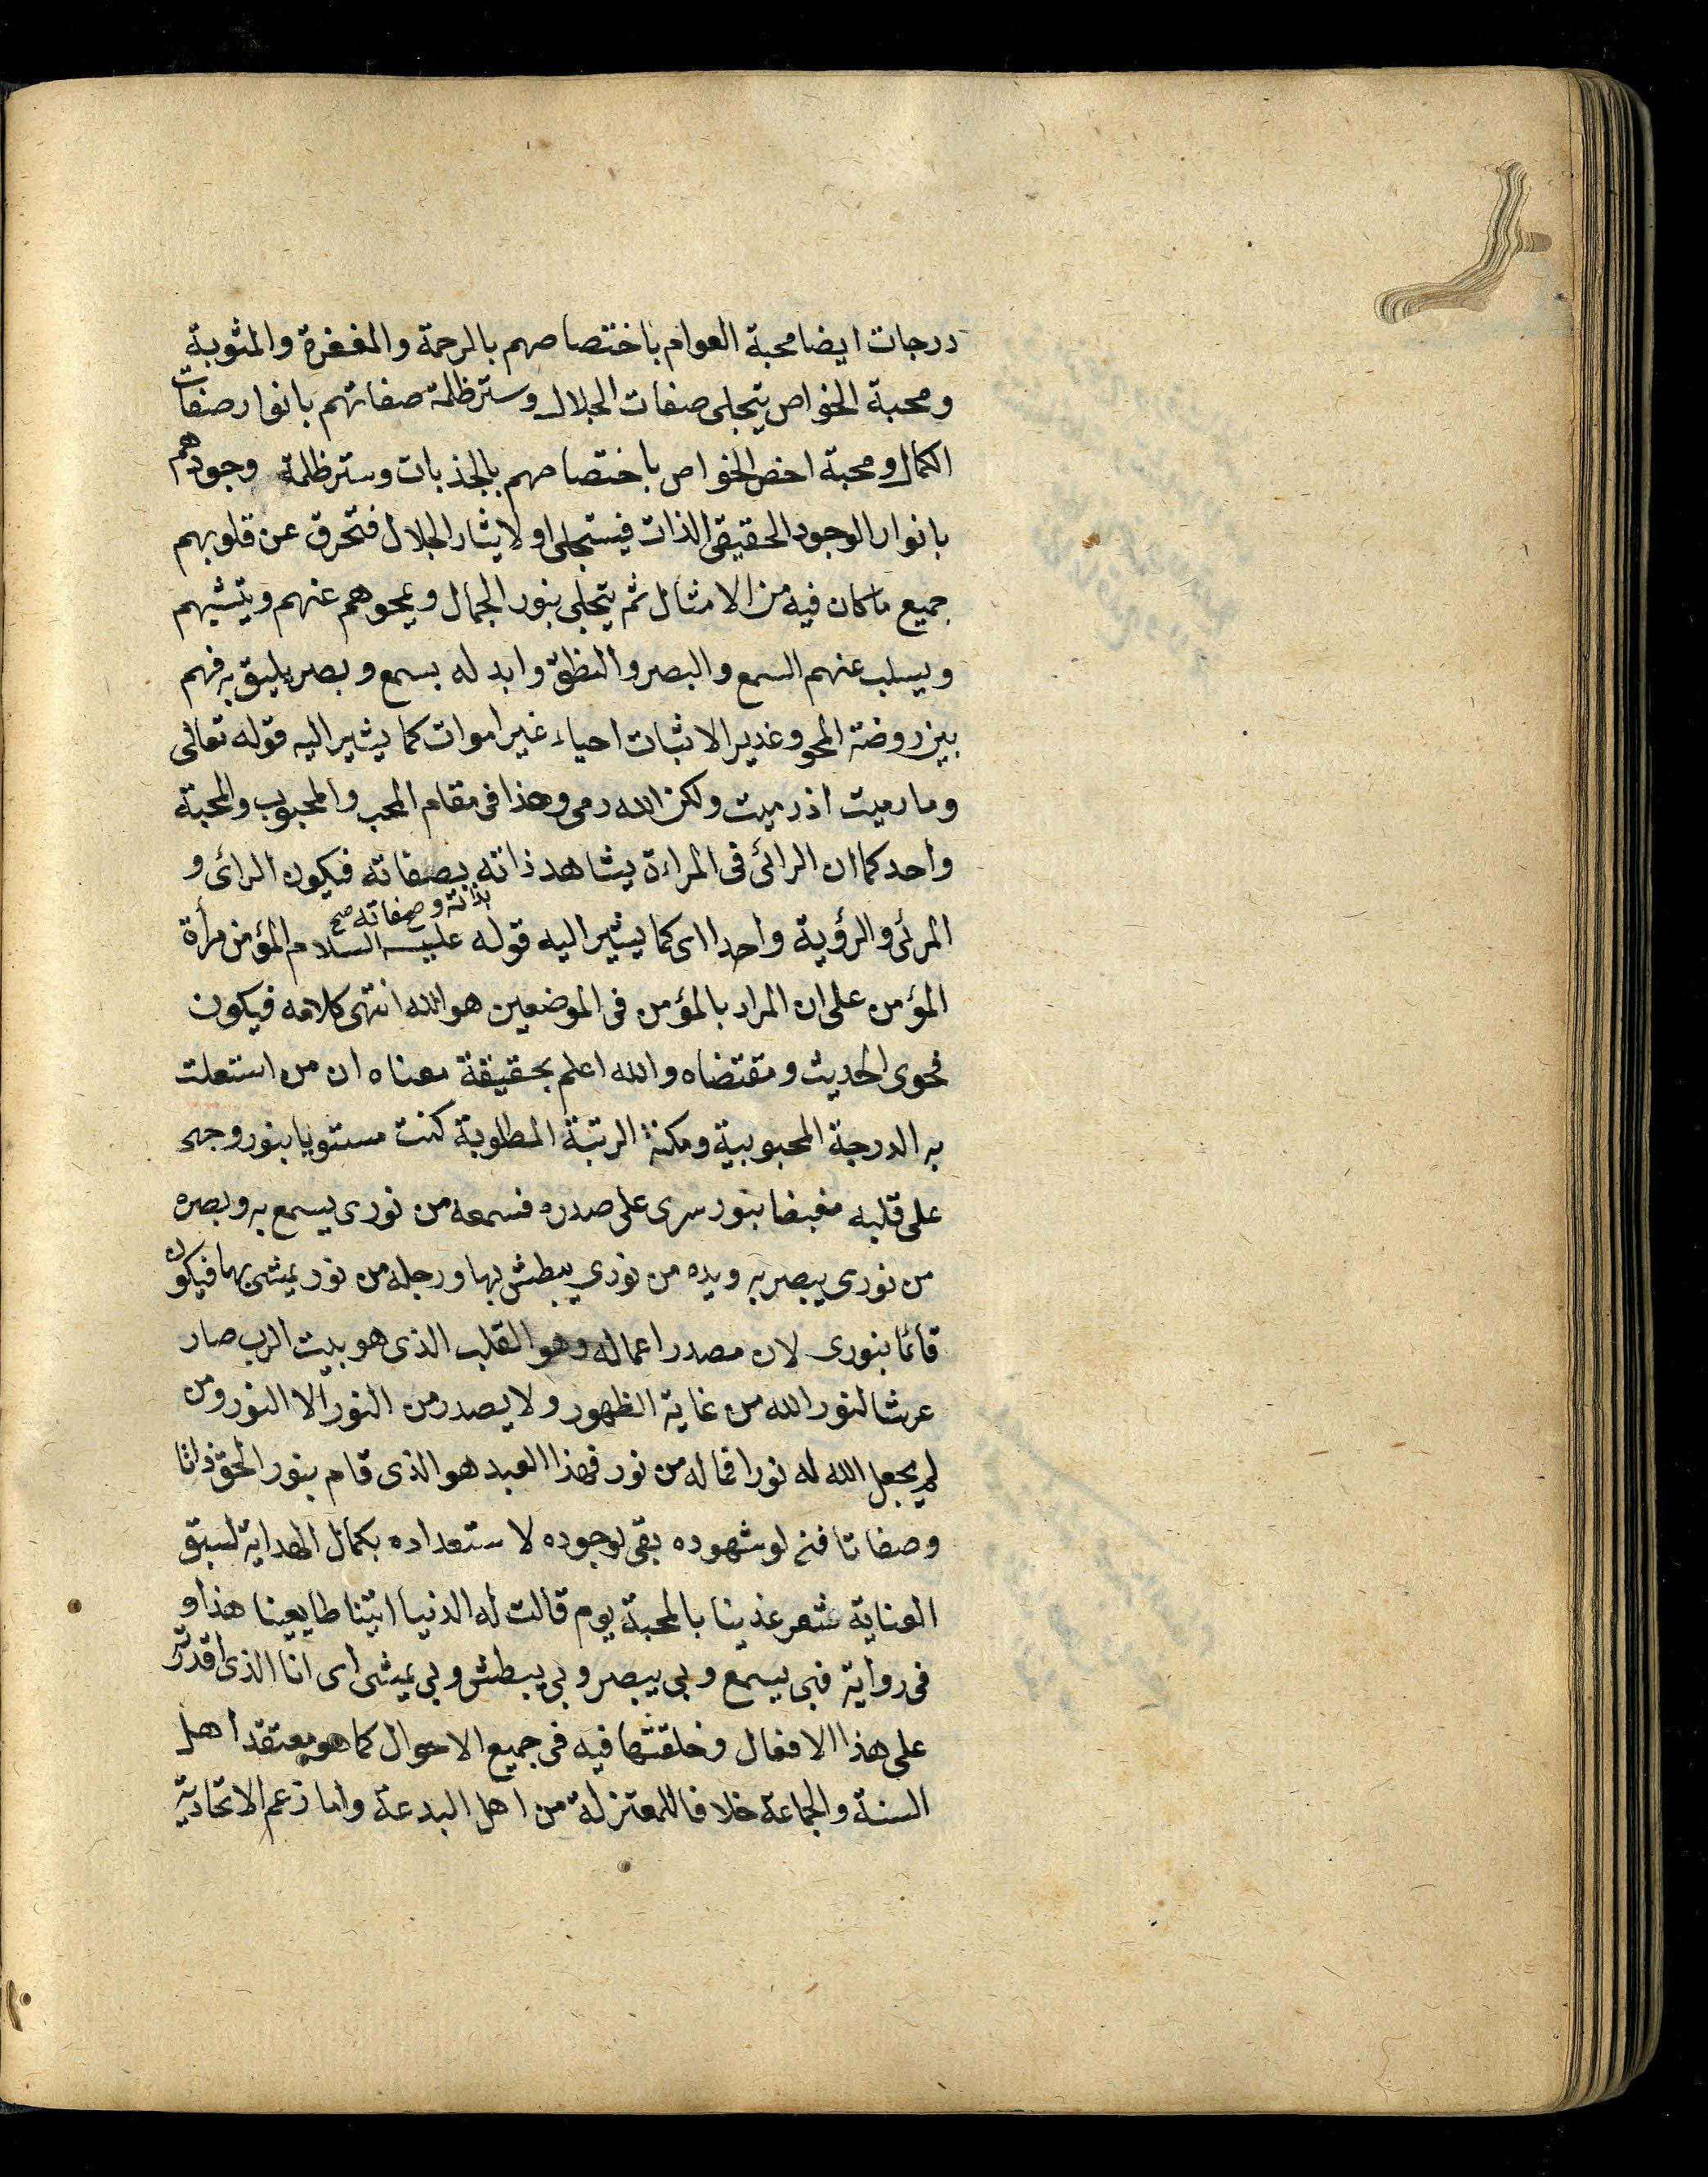 درجات ايضا محبة العوام باختصاصهم بالرحمة والمغفرة والمثوبة
ومحبة الخواص بتجلى صفات الجلال وستر ظلمة صفاتهم بانوار صفات
الكمال ومحبة اخص الخواص باختصاصهم بالجذبات وستر ظلمة وجودهم
بانوار الوجود الحقيقى الذات فيستجلى اولا يثار الجلال فتحرق عن قلوبهم
جميع ما كان فيه من الامثال ثم يتجلى بنور الجمال ويمحوهم عنهم ويثبتهم
ويسلب عنهم السمع والبصر والنطق وابد له بسمع وبصر يليق به فهم
بين روضة المحو وغدير الاثبات احياء غير اموات كما يشير اليه قوله تعالى
وما رميت اذ رميت ولكن الله رمى وهذا فى مقام المحب والمحبوب والمحبة
واحد كما ان الرائى فى المراءة يشاهد ذاته بصفاته فيكون الرائى و
بذاته وصفاته صح
المرئى والرؤية واحدا اى كما يشير اليه قوله عليه السلام المؤمن مرأة
المؤمن على ان المراد بالمؤمن فى الموضعين هو الله انتهى كلامه فيكون
فحوى الحديث ومقتضاه والله اعلم بحقيقة معناه ان من استعلت
به الدرجة المحبوبية ومكنة الرتبة المطلوبة كنت مستويا بنور وجهى
على قلبه مفيضا بنور سرى على صدره فسمعه من نورى يسمع به وبصره
من نورى يبصر به ويده من نورى يبطش بها ورجله من نور يمشى بها فيكون
قائما بنورى لان مصدر اعماله وهو القلب الذى هو بيت الرب صار
عرشا لنور الله من غاية الظهور ولا يصدر من النور الا النور ومن
لم يجعل الله له نورا فما له من نور فهذا العبد هو الذى قام بنور الحق ذاتا
وصفاتا فنى لو شهوده بقى لوجوده لاستعداده بكمال الهداية لسبق
العناية شعر غذينا بالمحبة يوم قالت له الدنيا اتينا طايعينا هذا و
فى رواية فبى يسمع وبى يبصر وبى يبطش وبى يمشى اى انا الذى اقدرته
على هذا الافعال وخلقتها فيه فى جميع الاحوال كما هو معتقد اهل
السنة والجماعة خلافا للمعتزلة من اهل البدعة واما زعم الاتحادية